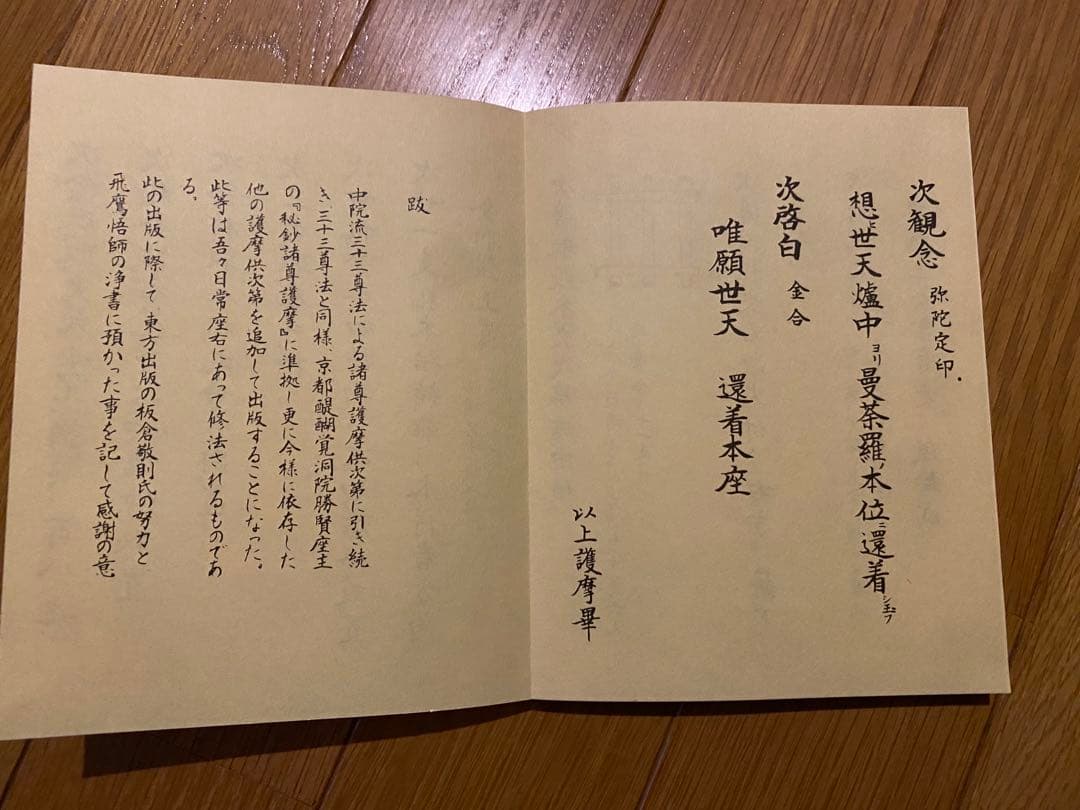 次観念 弥陀定印.
想ヘ世天爐中ヨリ曼荼羅ノ本位ニ還着シ玉フ
次啓白 金合
唯願世天 還着本座
以上護摩畢
跋
中院流三十三尊法による諸尊護摩供次第に引き続
き、三十三尊法と同様、京都醍醐覚洞院勝賢座主
の『秘鈔諸尊護摩』に準拠し更に今様に依存した
他の護摩供次第を追加して出版することになった。
此等は吾々日常座右にあって修法されるものであ
る。
此の出版に際して東方出版の板倉敬則氏の努力と
飛鷹悟師の浄書に預かった事を記して感謝の意